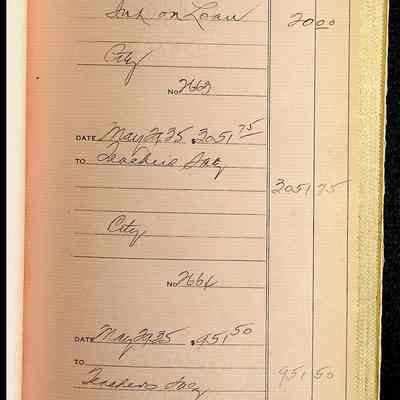 Int on Loan 20 00
City
No 2663
DATE May 29, 25 $ 2051 75
TO Teachers Salry
2051 75
City
No 2664
DATE May 29, 25 $ 951 50
TO
Teachers Salry 951 50